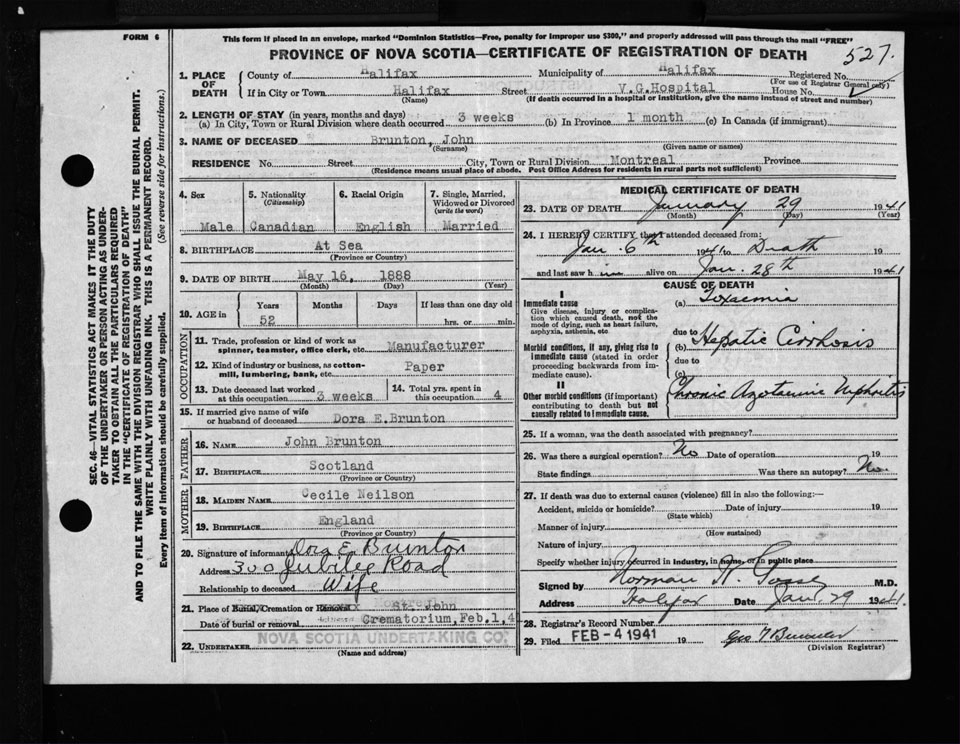 FORM 6
This form if placed in an envelope, marked "Dominion Statistics—Free, penalty for improper use $300," and properly addressed will pass through the mail "FREE"
PROVINCE OF NOVA SCOTIA—CERTIFICATE OF REGISTRATION OF DEATH
527.
1. PLACE OF DEATH
County of Halifax Municipality of Halifax Registered No.
(For use of Registrar General only)
If in City or Town Halifax Street V.G.Hospital House No.
(Name) (If death occurred in a hospital or institution, give the name instead of street and number)
2. LENGTH OF STAY (in years, months and days)
(a) In City, Town or Rural Division where death occurred 3 weeks (b) In Province 1 month (c) In Canada (if immigrant)
3. NAME OF DECEASED Brunton, John
(Surname) (Given name or names)
RESIDENCE No. Street City, Town or Rural Division Montreal Province
(Residence means usual place of abode. Post Office Address for residents in rural parts not sufficient)
4. Sex Male
5. Nationality (Citizenship) Canadian
6. Racial Origin English
7. Single, Married, Widowed or Divorced (write the word) Married
8. BIRTHPLACE At Sea
(Province or Country)
9. DATE OF BIRTH May 16, 1888
(Month) (Day) (Year)
10. AGE in Years Months Days If less than one day old
52 hrs. or min.
OCCUPATION
11. Trade, profession or kind of work as spinner, teamster, office clerk, etc. Manufacturer
12. Kind of industry or business, as cotton-mill, lumbering, bank, etc. Paper
13. Date deceased last worked at this occupation 3 weeks
14. Total yrs. spent in this occupation 4
15. If married give name of wife or husband of deceased Dora E.Brunton
FATHER
16. NAME John Brunton
17. BIRTHPLACE Scotland
(Province or Country)
MOTHER
18. MAIDEN NAME Cecile Neilson
19. BIRTHPLACE England
(Province or Country)
20. Signature of informant Dora E. Brunton
Address 300 Jubilee Road
Relationship to deceased Wife
21. Place of Burial, Cremation or Removal St. John
Date of burial or removal Crematorium,Feb.1,4
NOVA SCOTIA UNDERTAKING CO.
22. UNDERTAKER
(Name and address)
MEDICAL CERTIFICATE OF DEATH
23. DATE OF DEATH January 29 1941
(Month) (Day) (Year)
24. I HEREBY CERTIFY, that I attended deceased from:
Jan. 6th 1941 to Death 19
and last saw him alive on Jan. 28th 1941
CAUSE OF DEATH
I
Immediate cause
Give disease, injury or complication which caused death, not the mode of dying, such as heart failure, asphyxia, asthenia, etc.
(a) Toxaemia
due to
Morbid conditions, if any, giving rise to immediate cause (stated in order proceeding backwards from immediate cause).
(b) Hepatic Cirrhosis
due to
(c)
II
Other morbid conditions (if important) contributing to death but not causally related to immediate cause.
Chronic Azotaemic Nephritis
25. If a woman, was the death associated with pregnancy?
26. Was there a surgical operation? No Date of operation 19
State findings Was there an autopsy? No.
27. If death was due to external causes (violence) fill in also the following:—
Accident, suicide or homicide? Date of injury 19
(State which)
Manner of injury
(How sustained)
Nature of injury
Specify whether injury occurred in industry, in home, or in public place
Signed by Norman H. Gosse M.D.
Address Halifax Date Jan. 29 1941.
28. Registrar's Record Number
29. Filed FEB - 4 1941 19
(Division Registrar)
SEC. 46—VITAL STATISTICS ACT MAKES IT THE DUTY
OF THE UNDERTAKER OR PERSON ACTING AS UNDER-
TAKER TO OBTAIN ALL THE PARTICULARS REQUIRED
IN THE "CERTIFICATE OF REGISTRATION OF DEATH"
AND TO FILE THE SAME WITH THE DIVISION REGISTRAR WHO SHALL ISSUE THE BURIAL PERMIT.
WRITE PLAINLY WITH UNFADING INK. THIS IS A PERMANENT RECORD.
Every item of information should be carefully supplied. (See reverse side for instructions.)